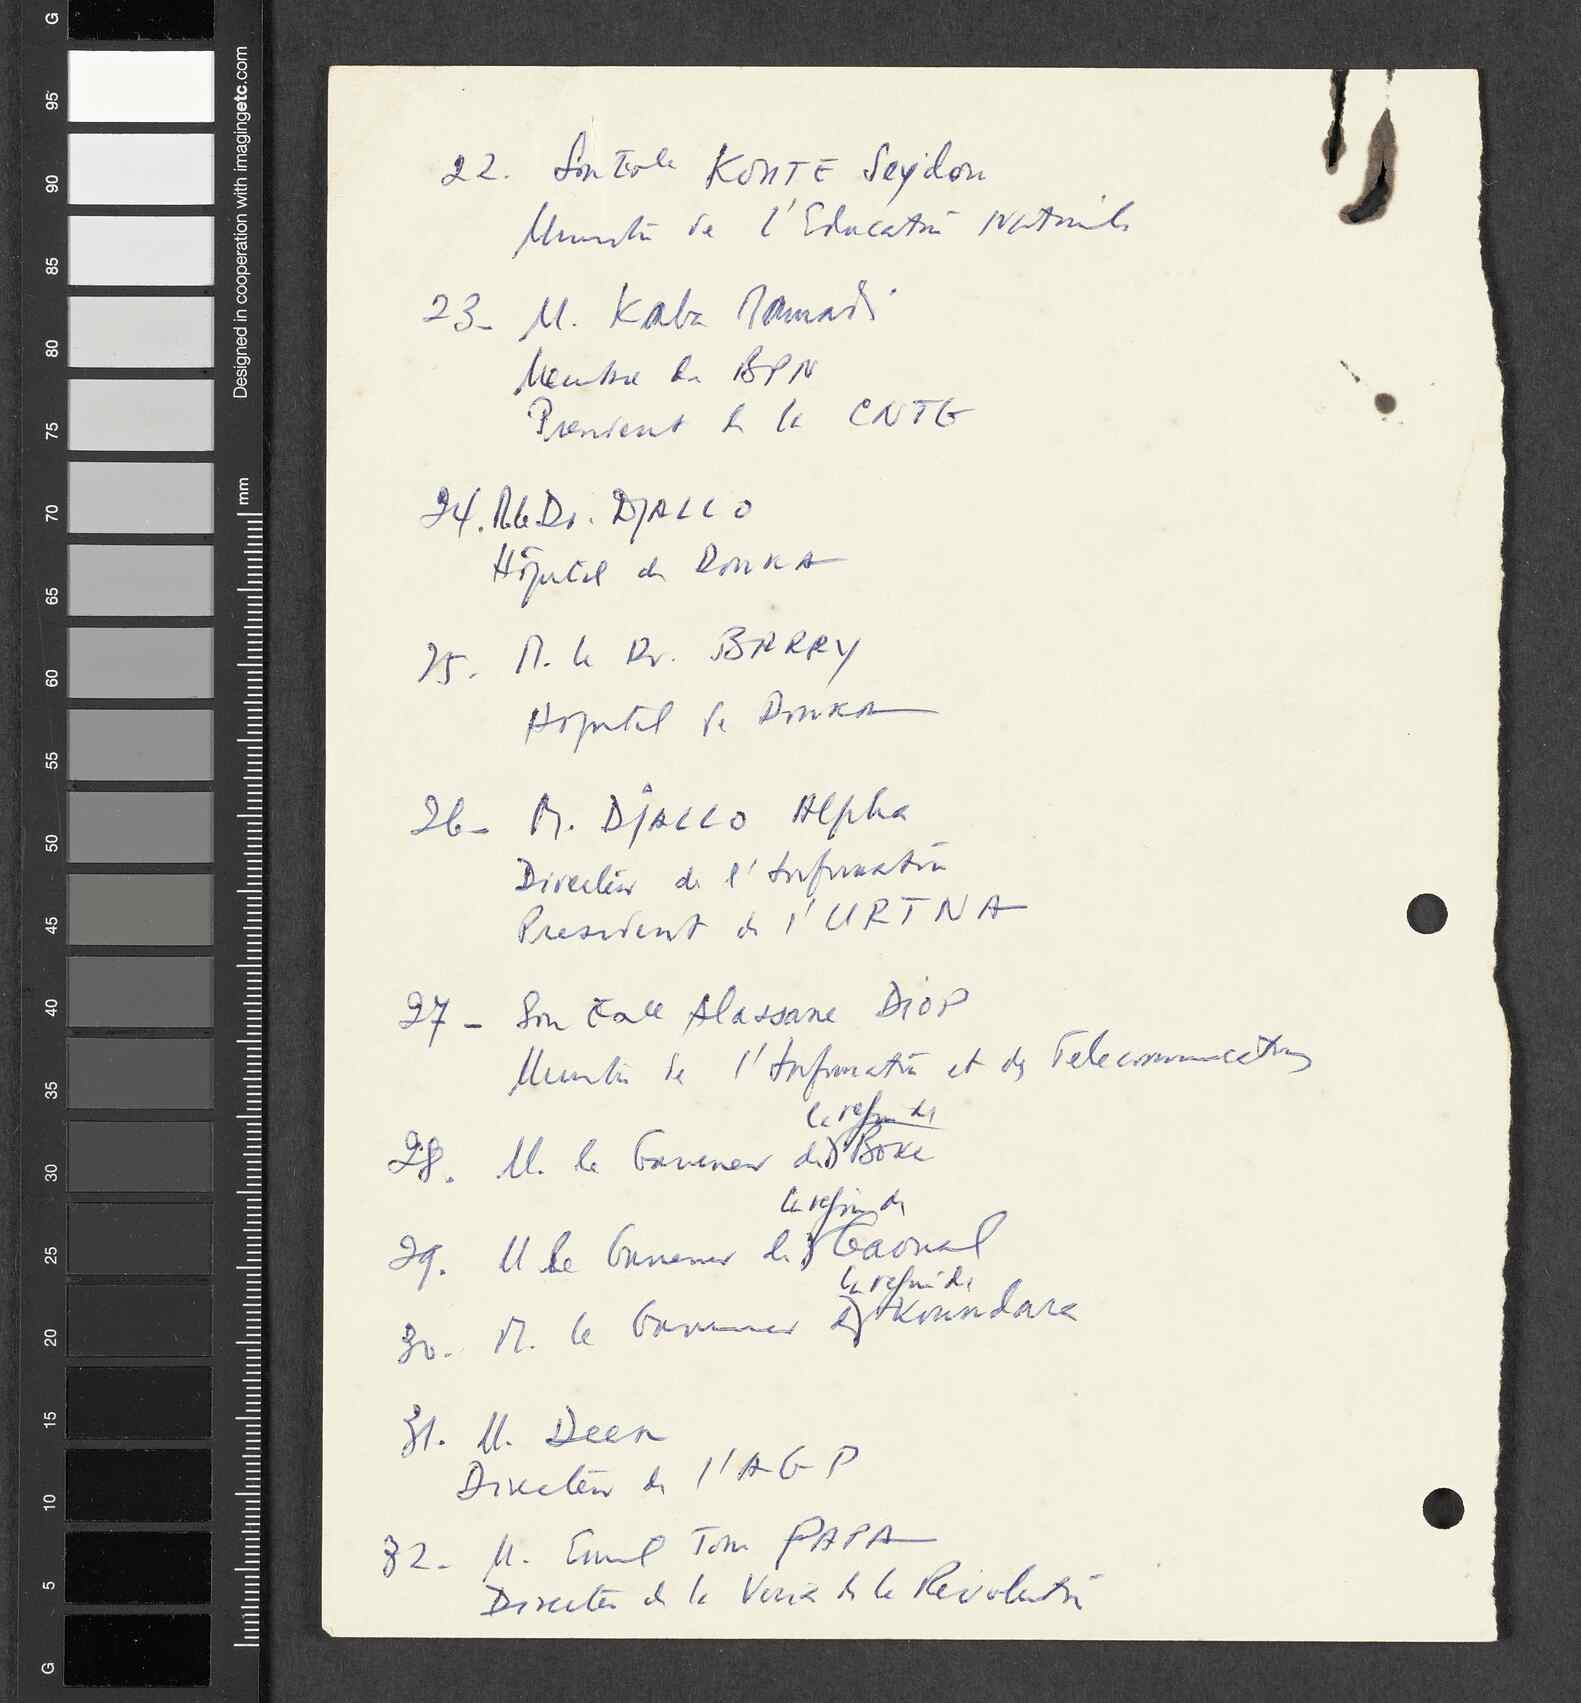 22. Son Exle KONTE Seydou
Ministre de l'Education Nationale
23- M. Kaba Mamadi
Membre du BPN
President de la CNTG
24. M. le Dr. DJALLO
Hôpital de DONKA
25. M. le Dr. BARRY
Hôpital de DONKA
26- M. DJALLO Alpha
Directeur de l'Information
President de l'URTNA
27- Son Exce Alassane DIOP
Ministre de l'Information et des Telecommunications
la region de
28. M. le Gouverneur de Boke
la region de
29. M le Gouverneur de Gaoual
la region de
30. M. le Gouverneur de Koundara
31. M. Deen
Directeur de l'AGP
32- M. Emil Tom PAPA
Directeur de la Voix de la Révolution
G
95
90
85
80
75
70
65
60
55
50
45
40
35
30
25
20
15
10
5
G
Designed in cooperation with imagingetc.com
mm